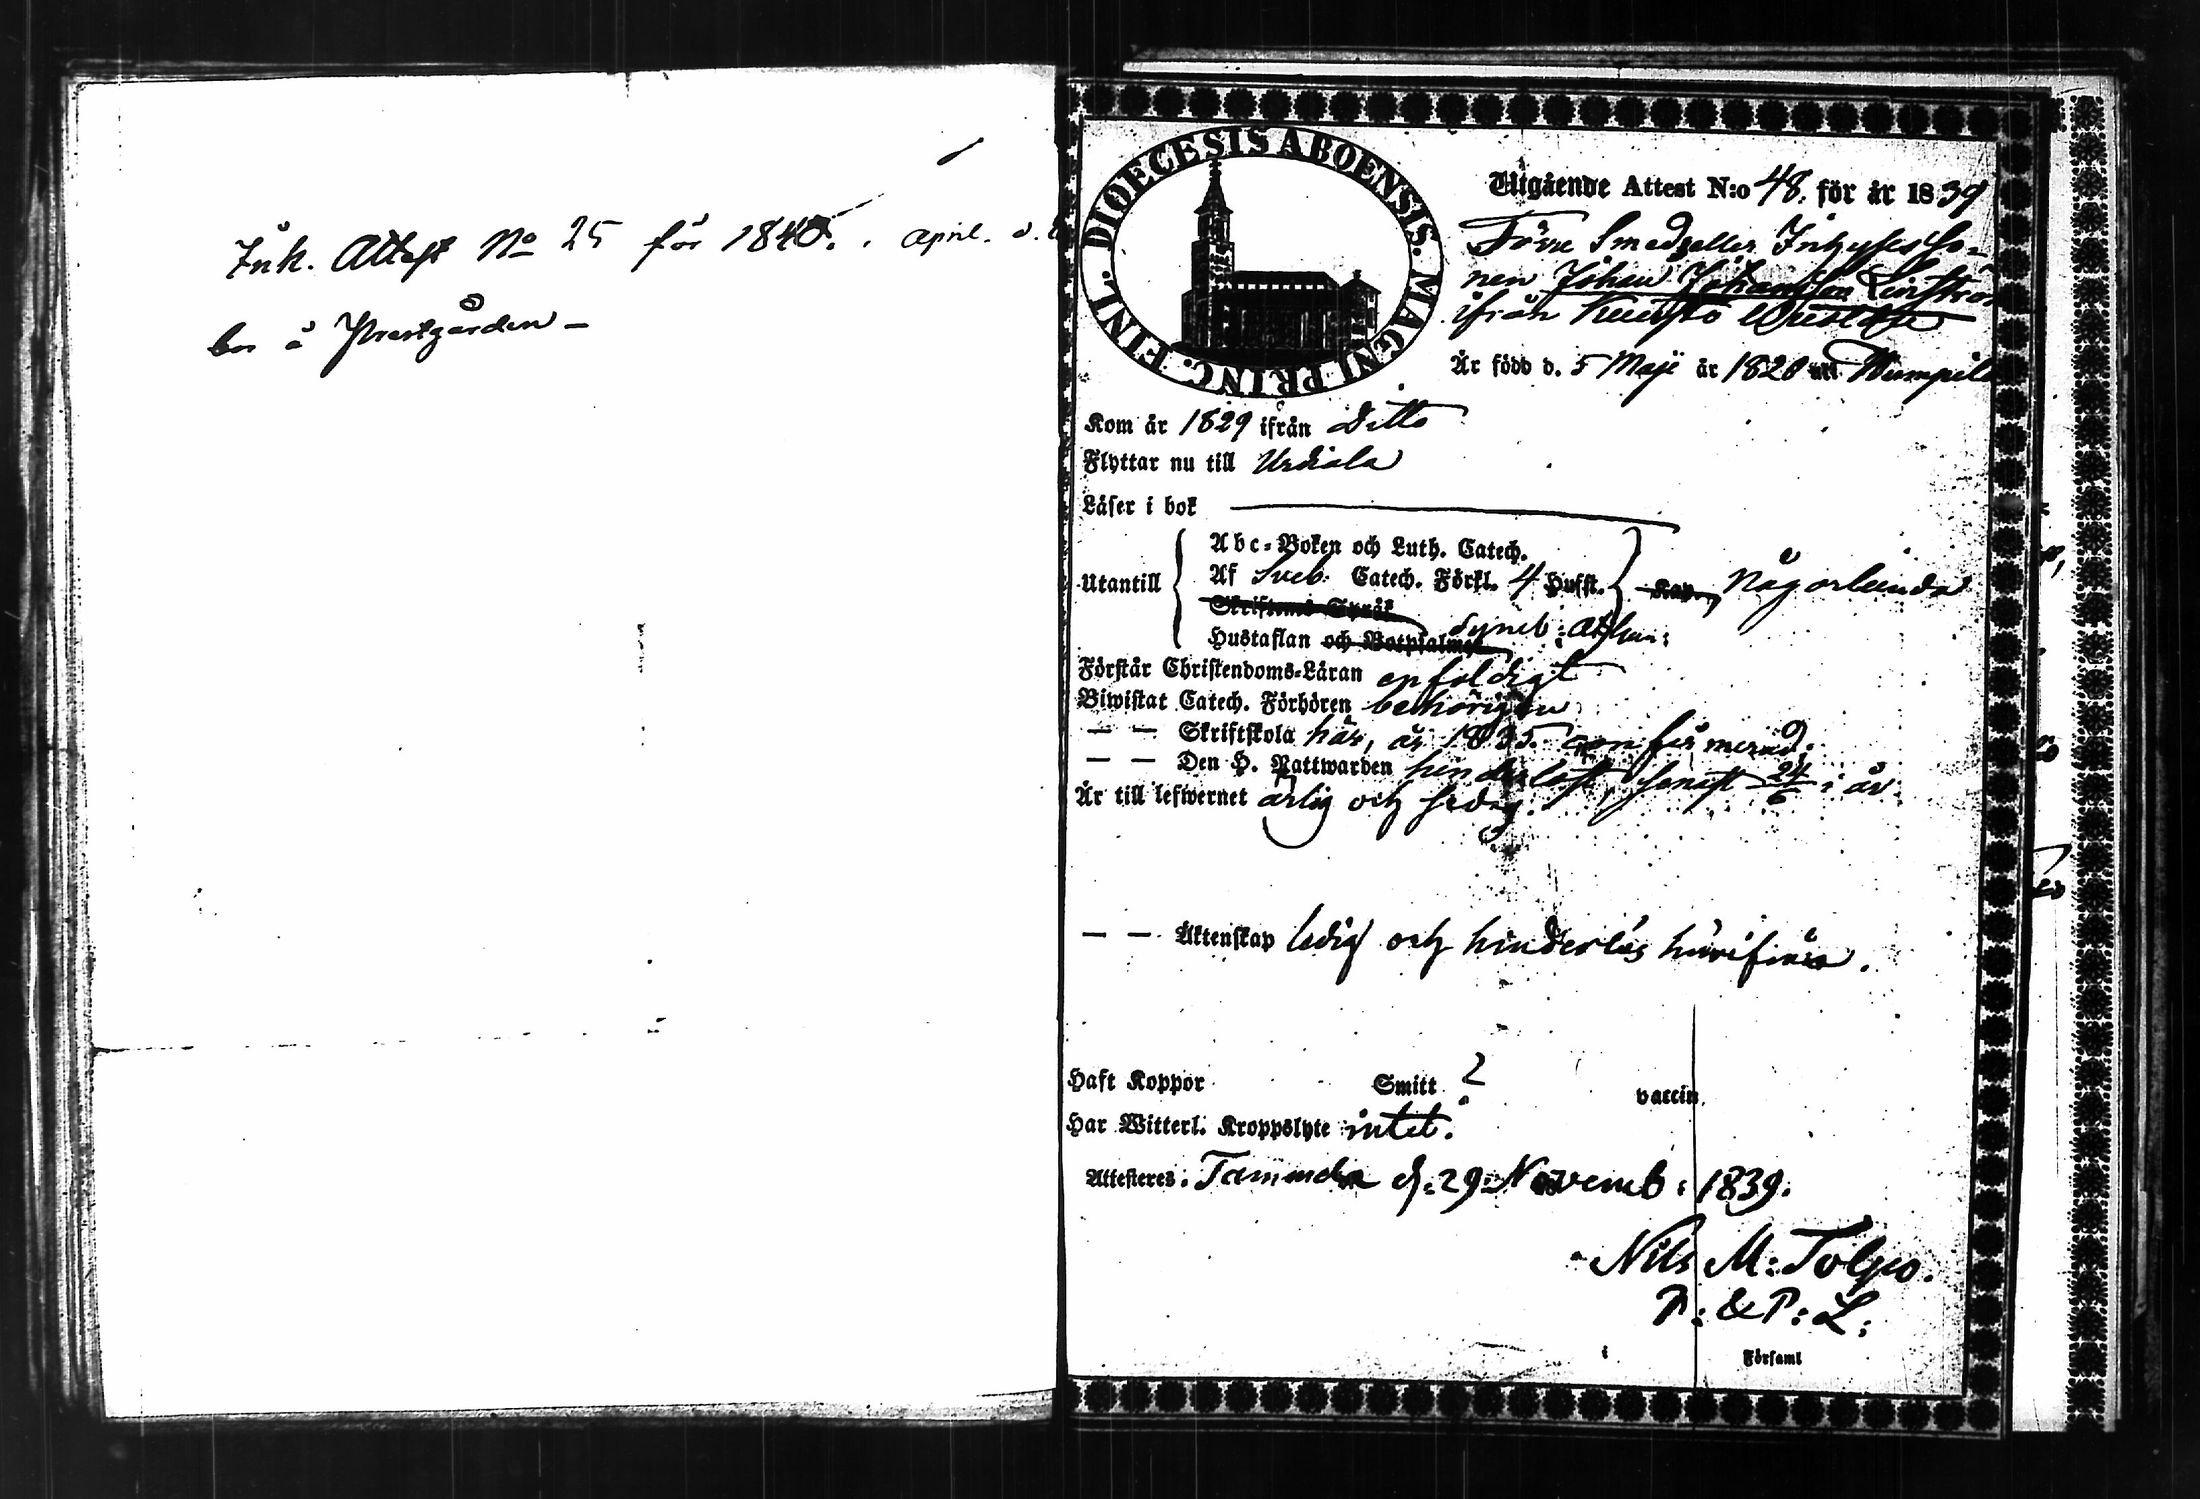 Ink. Attest No 25 för 1840. april.
bor å Prestgården –
DIOECESIS ABOENSIS. MAGNI PRINC. FINL.
Utgående Attest N:o 48. för år 1839
Förre Smedgesellen Inhysesso-
nen Johan Johansson Lenström
ifrån
Är född d. 5 Maji år 1820 uti Wampula
Kom år 1829 ifrån Ditto
Flyttar nu till Urdiala
Läser i bok
Abc-Boken och Luth. Catech.
Utantill Af Sveb. Catech. Förkl. 4 Hufst. Kap. Någorlunda
Skriftenes Språk
Hustaflan och Botpsalmer Symb: Athan:
Förstår Christendoms-Läran enfoldigt
Biwistat Catech. Förhören behörigen
— — Skriftskola här, år 1835. confirmerad.
— — Den H. Nattwarden hinderlöst, senast 24/6 i år
Är till lefwernet ärlig och sedig.
— — Äktenskap ledig och hinderlös härifrån.
Haft Koppor Smitt ? vaccin.
Har Witterl. Kroppslyte intet.
Attesteres. Tammela d. 29 Novemb: 1839.
Nils M: Tolpo.
P: & P: L:
i Församl